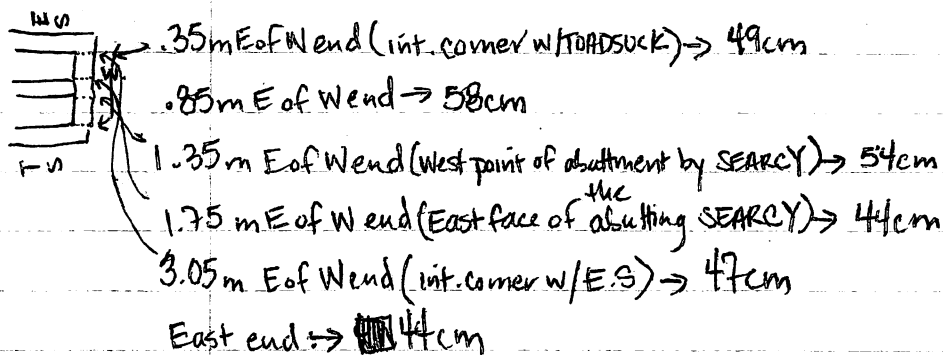 E S
.35m E of W end (int. corner w/TOADSUCK) → 49cm
.85m E of W end → 58cm
1.35m E of W end (West point of abuttment by SEARCY) → 54cm
1.75 m E of W end (East face of the abutting SEARCY) → 44cm
3.05m E of W end (int. corner w/E.S) → 47cm
East end :→ 44cm
T S